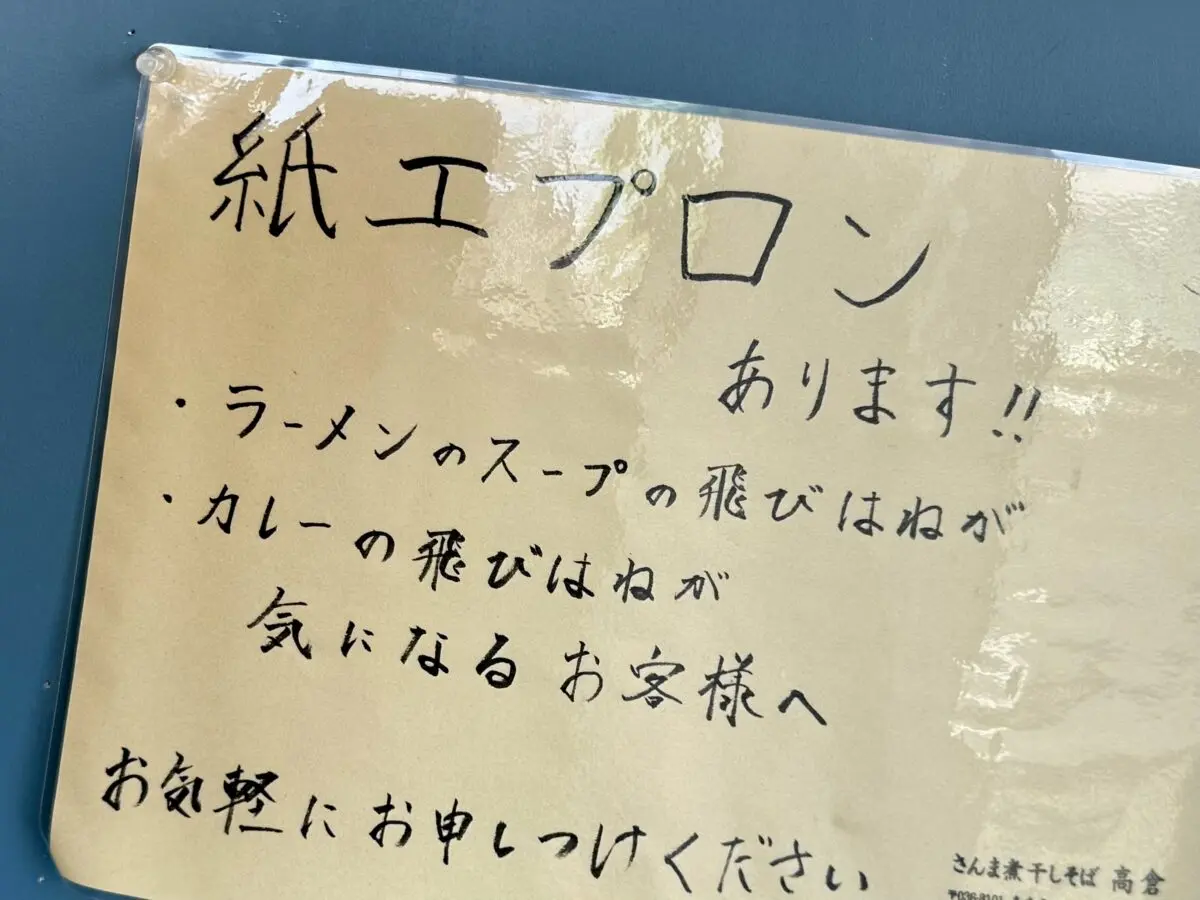 紙エプロン
あります!!
・ラーメンのスープの飛びはねが
・カレーの飛びはねが
気になるお客様へ
お気軽にお申しつけください
さんま煮干しそば 高倉
〒036-8101